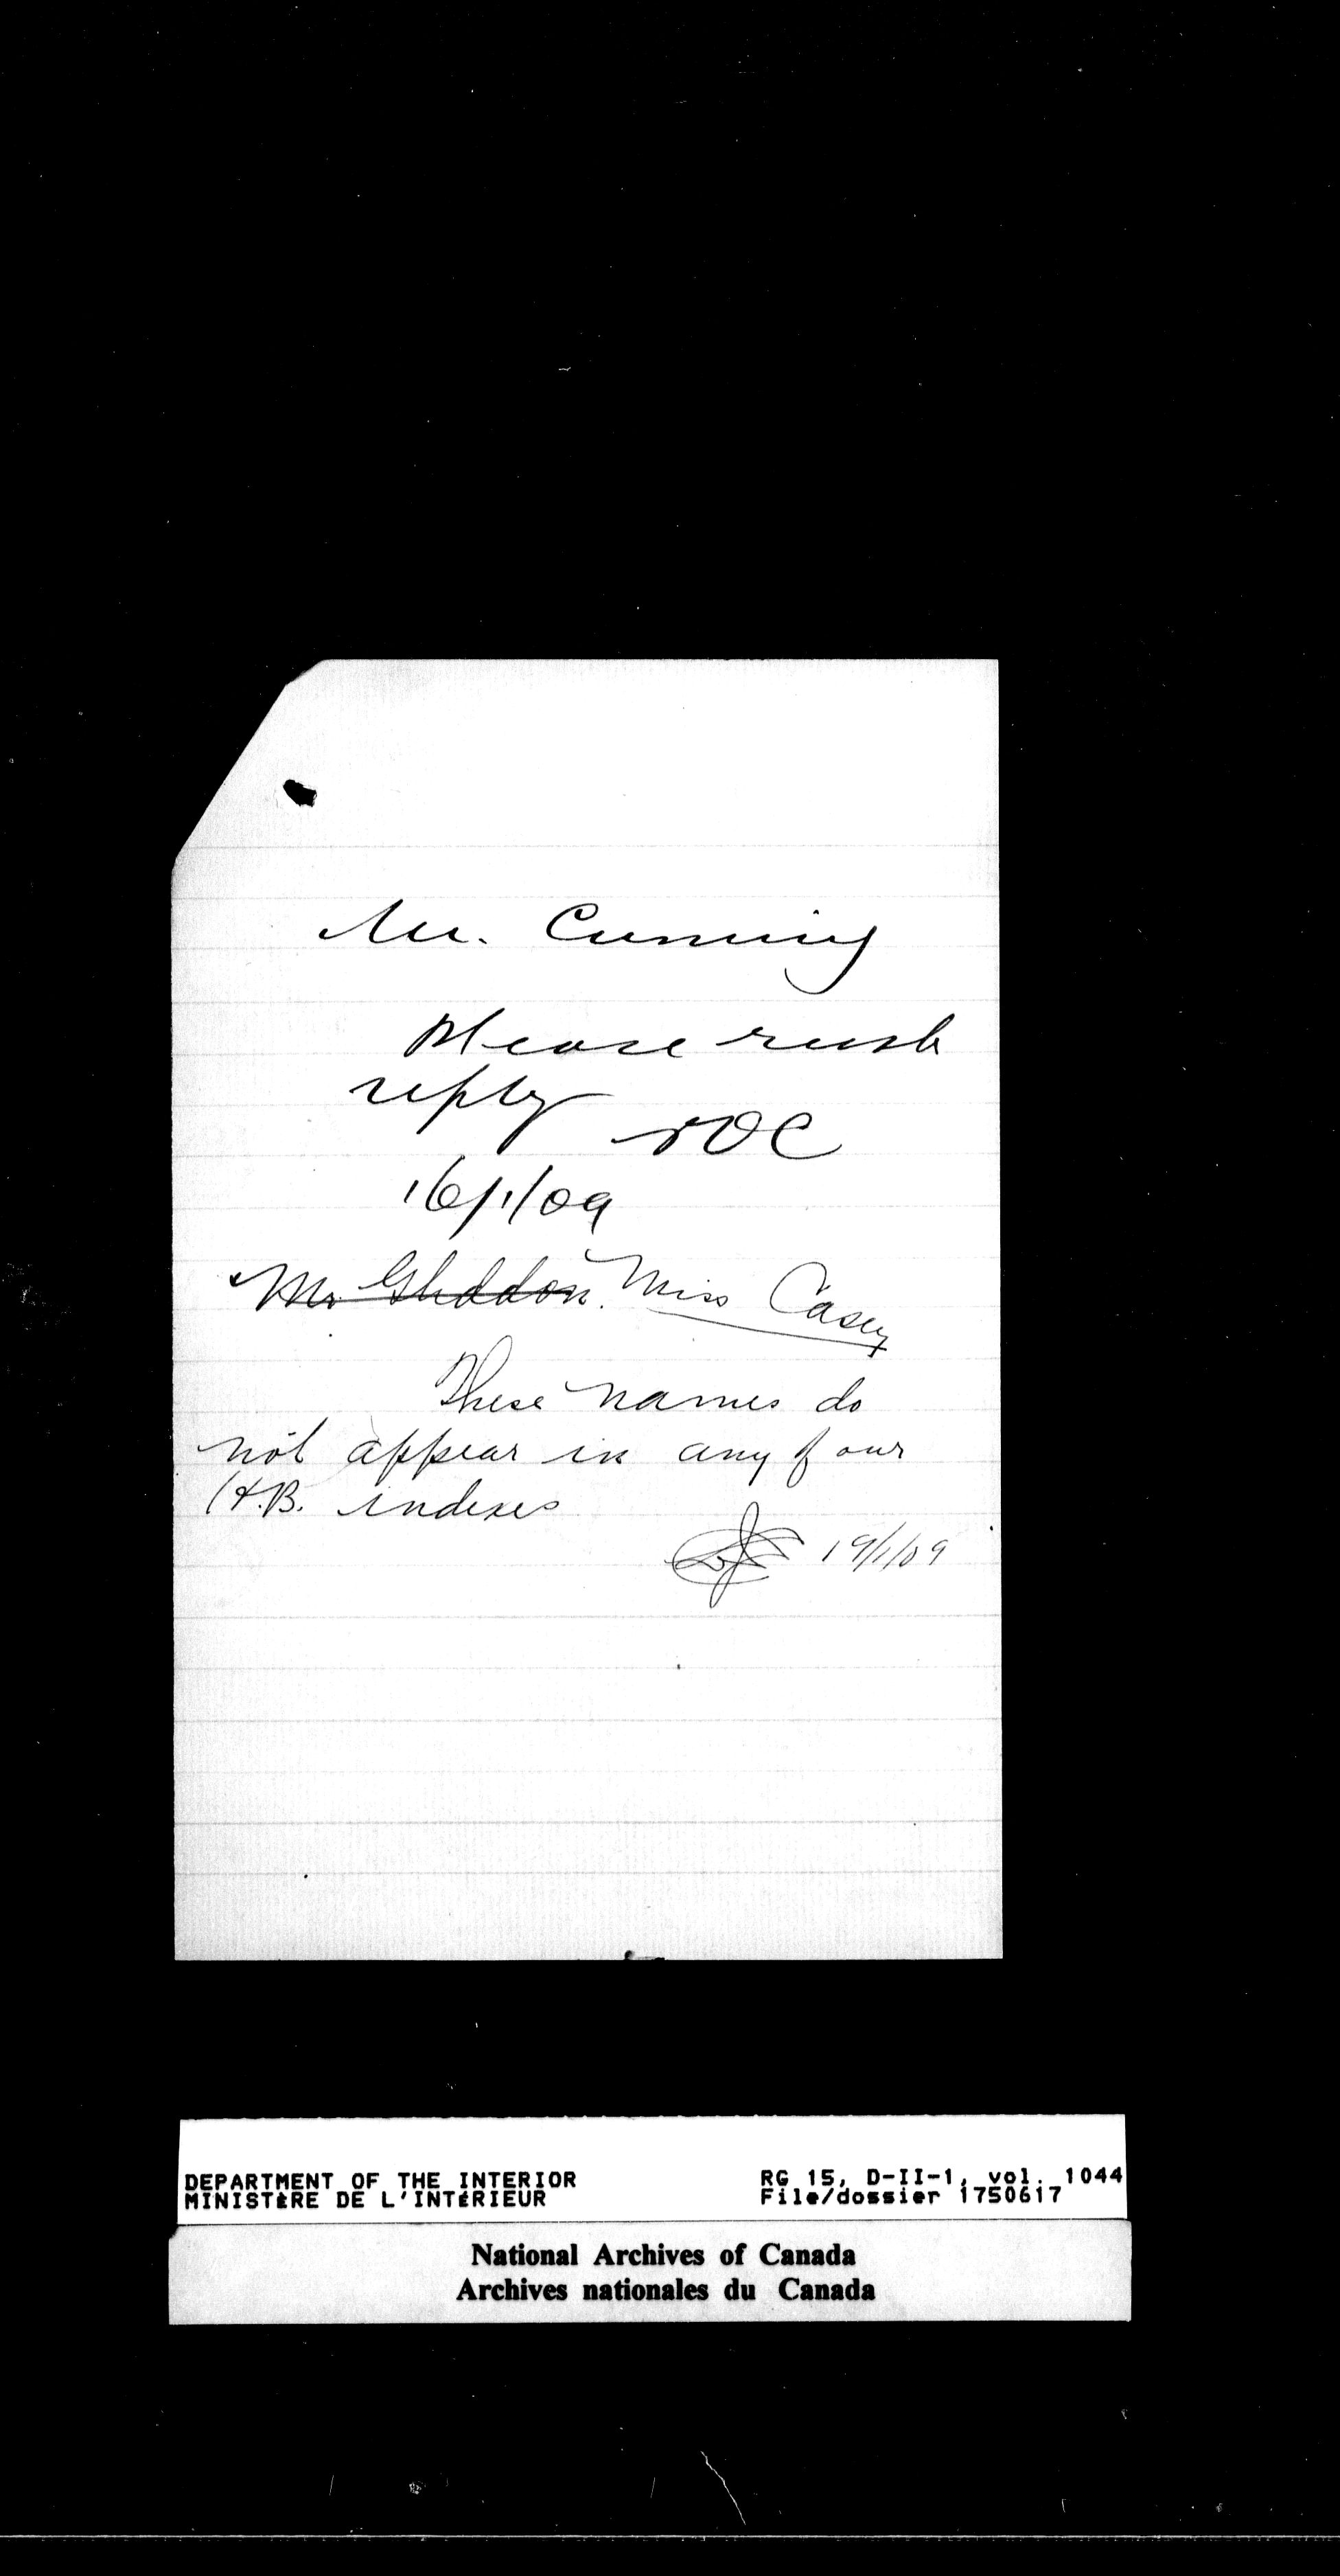 Mr. Cuming
Please rush
reply
ROC
16/1/09
Mr Gliddon. Miss Casey
These names do
not appear in any of our
H.B. indexes
19/1/09
DEPARTMENT OF THE INTERIOR RG 15, D-II-1, vol. 1044
MINISTÈRE DE L'INTÉRIEUR File/dossier 1750617
National Archives of Canada
Archives nationales du Canada